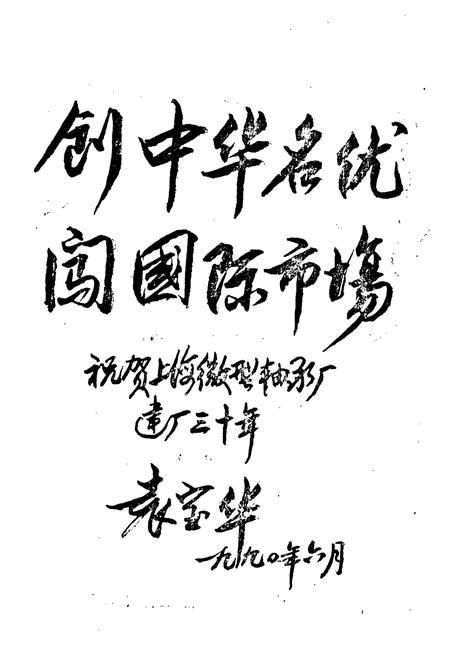 创中华名优
闯國际市場
祝贺上海微型轴承厂
建厂三十年
袁宝华
一九九〇年六月